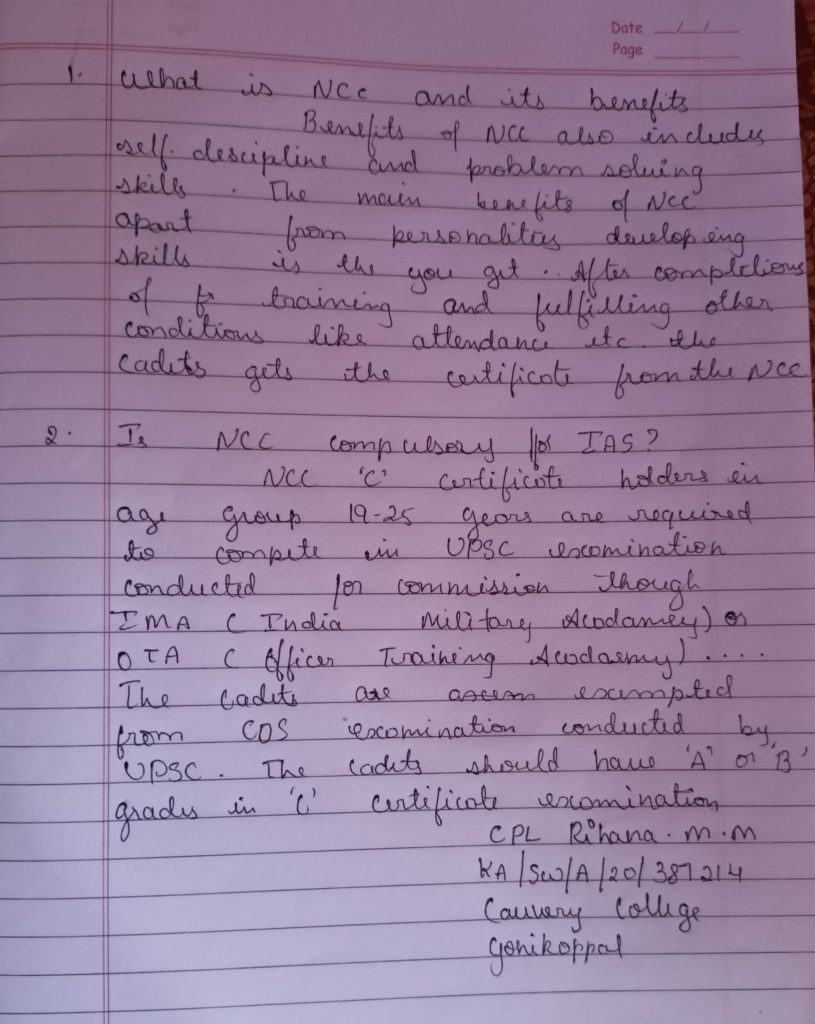 Date __/__/__
Page
1. What is NCC and its benefits
Benefits of NCC also includes
self. descipline and problem solving
skills. The main benefits of NCC
apart from personalities developing
skills is the you get.. After completions
of training and fulfilling other
conditions like attendance etc. the
cadets gets the certificate from the NCC
2. Is NCC compulsory for IAS?
NCC 'C' certificate holders in
age group 19-25 years are required
to compete in UPSC examination
conducted for commission though
IMA ( India Military Acadamey) or
OTA ( Officer Training Acadaemy)....
The cadets are exempted
from CDS examination conducted by
UPSC. The cadets should have 'A' or 'B'
grades in 'C' certificate examination
CPL Rihana. M.M
KA/SW/A/20/387214
Cauvery College
Gonikoppal